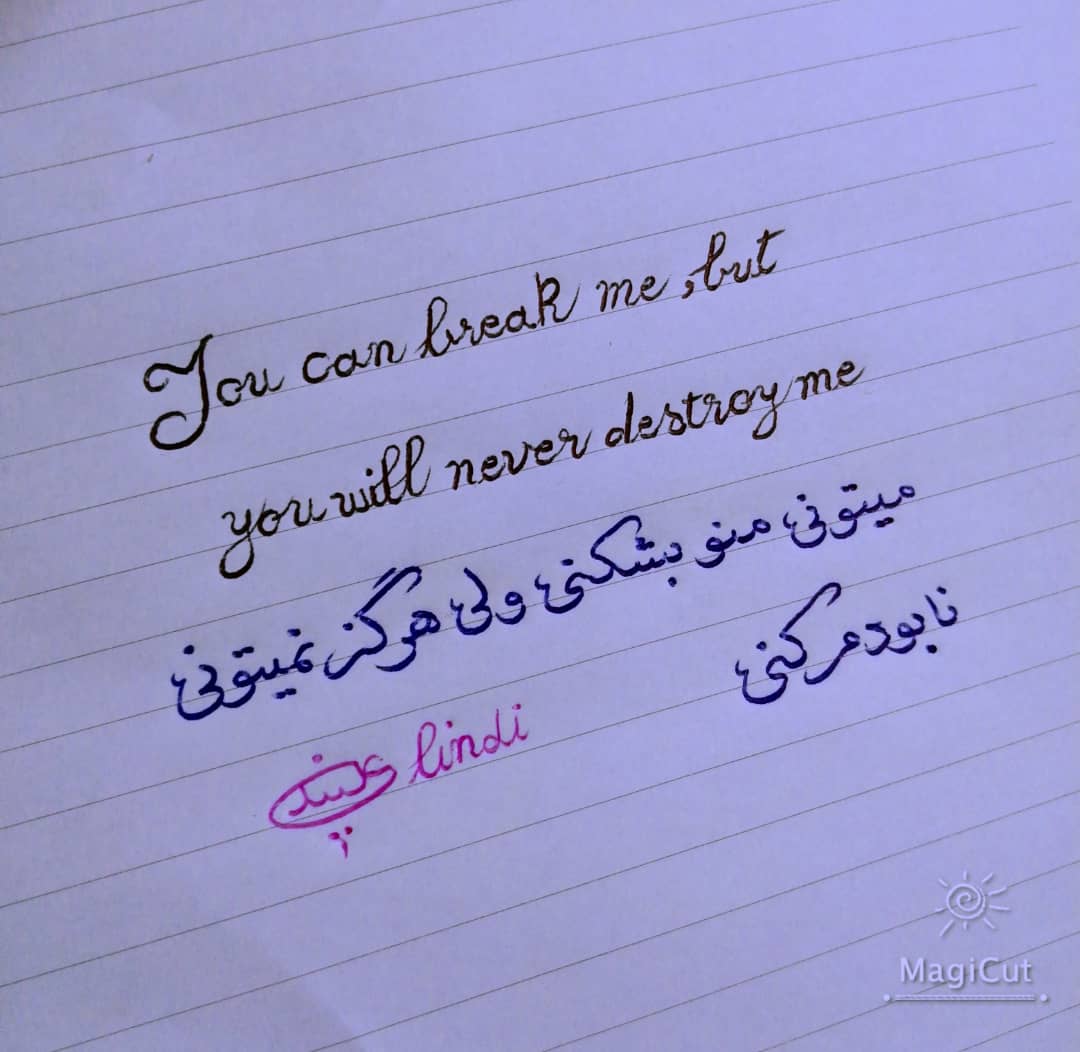 You can break me, but
you will never destroy me
میتونی منو بشکنی ولی هرگز نمیتونی
نابودم کنی
lindi
MagiCut